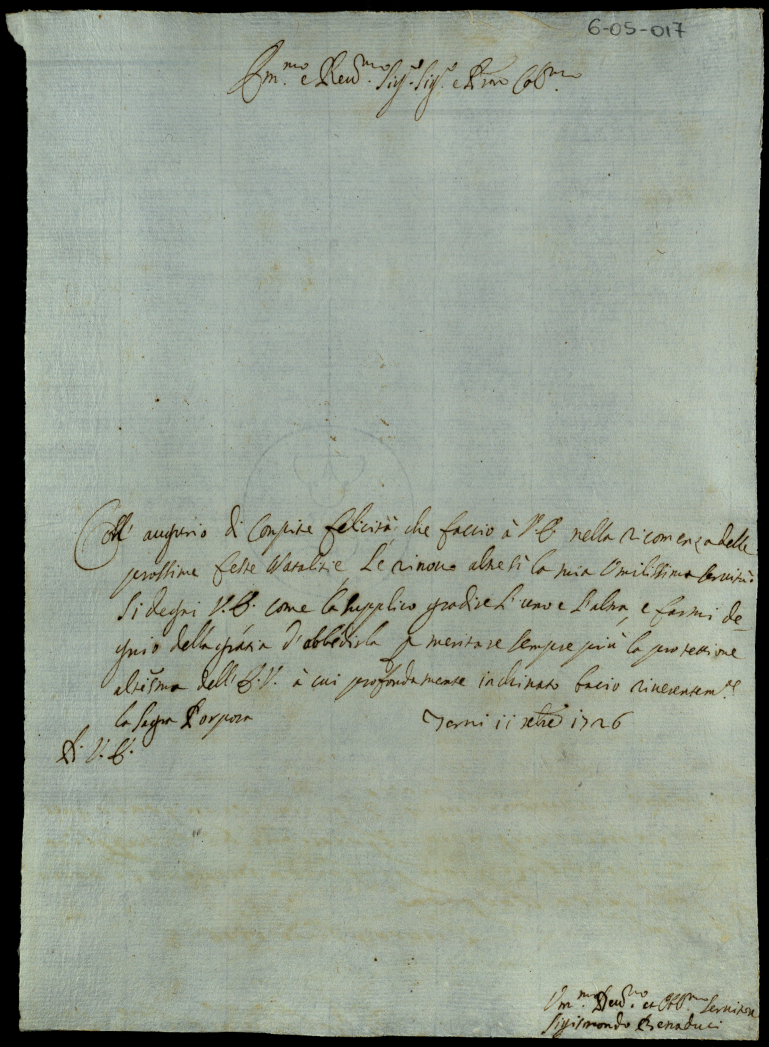 6-05-017
Em.mo e Rev.mo Sig.r Sig.r e P.rone Col.mo
Coll' augurio di compite felicità, che faccio à V.E. nella ricorrenza delle
prossime feste Natalizie, Le rinovo altresì la mia Umilissima servitù.
Si degni V.E. come la supplico gradire l'uno e l'altra, e farmi de-
gnio della grazia d'obbedirla p meritare sempre più la protettione
altis̃ma dell' E.V. à cui profondamente inchinato bacio riverentem.te
la Sagra Porpora Terni 11 xbre 1726
Di V.E.
Um.mo Dev.mo et Obb.mo Servitore
Sigismondo Benaduci